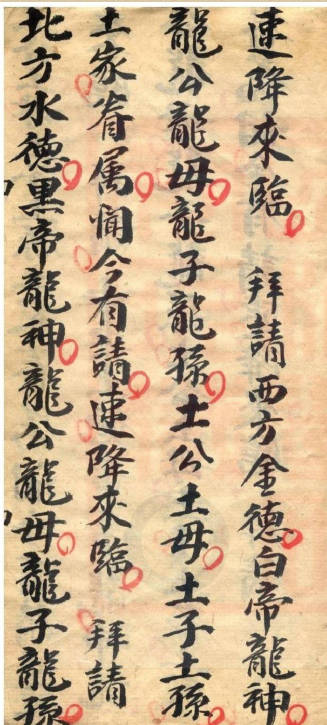 速降來臨 拜請西方金德白帝龍神
龍公龍母龍子龍孫土公土母土子土孫
土家眷属聞今有請速降來臨 拜請
北方水德黑帝龍神龍公龍母龍子龍孫